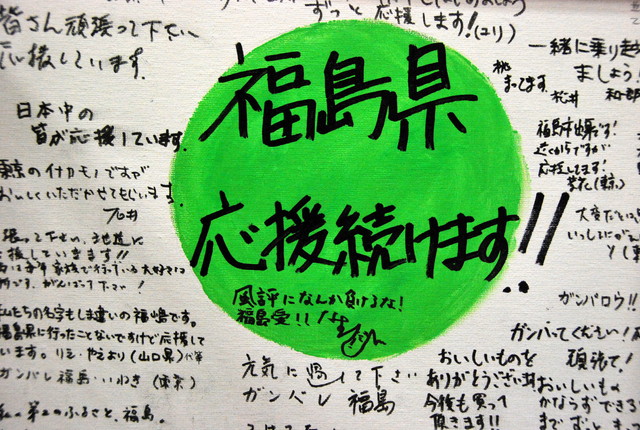 皆さん頑張って下さい
応援しています。
ずっと応援します!(ユリ)
一緒に乗り越
ましょう
福島県
応援続けます!!
風評になんか負けるな!
福島愛!!
日本中の
皆が応援しています。
東京のイナカモノですが
おいしくいただかせてもらいます。
丸井
張って下さい。
応援していきます!!
がんばって下さい!
私たちの名字もしま違いの福嶋です。
福島県に行ったことないですけど応援して
います。リミ・やえより(山口県)
ガンバレ福島・いわき(東京)
私の第2のふるさと、福島。
待ってます。
福島市出身です!
近くからですが
応援してます!
(東京)
大変だけど
ガンバロウ!!
ガンバってください!
頑張て!
おいしいものを
ありがとうございます
今後も買って
頂きます!!
おいしいもの
かならずできる
まで
元気に過して下さい
ガンバレ 福島